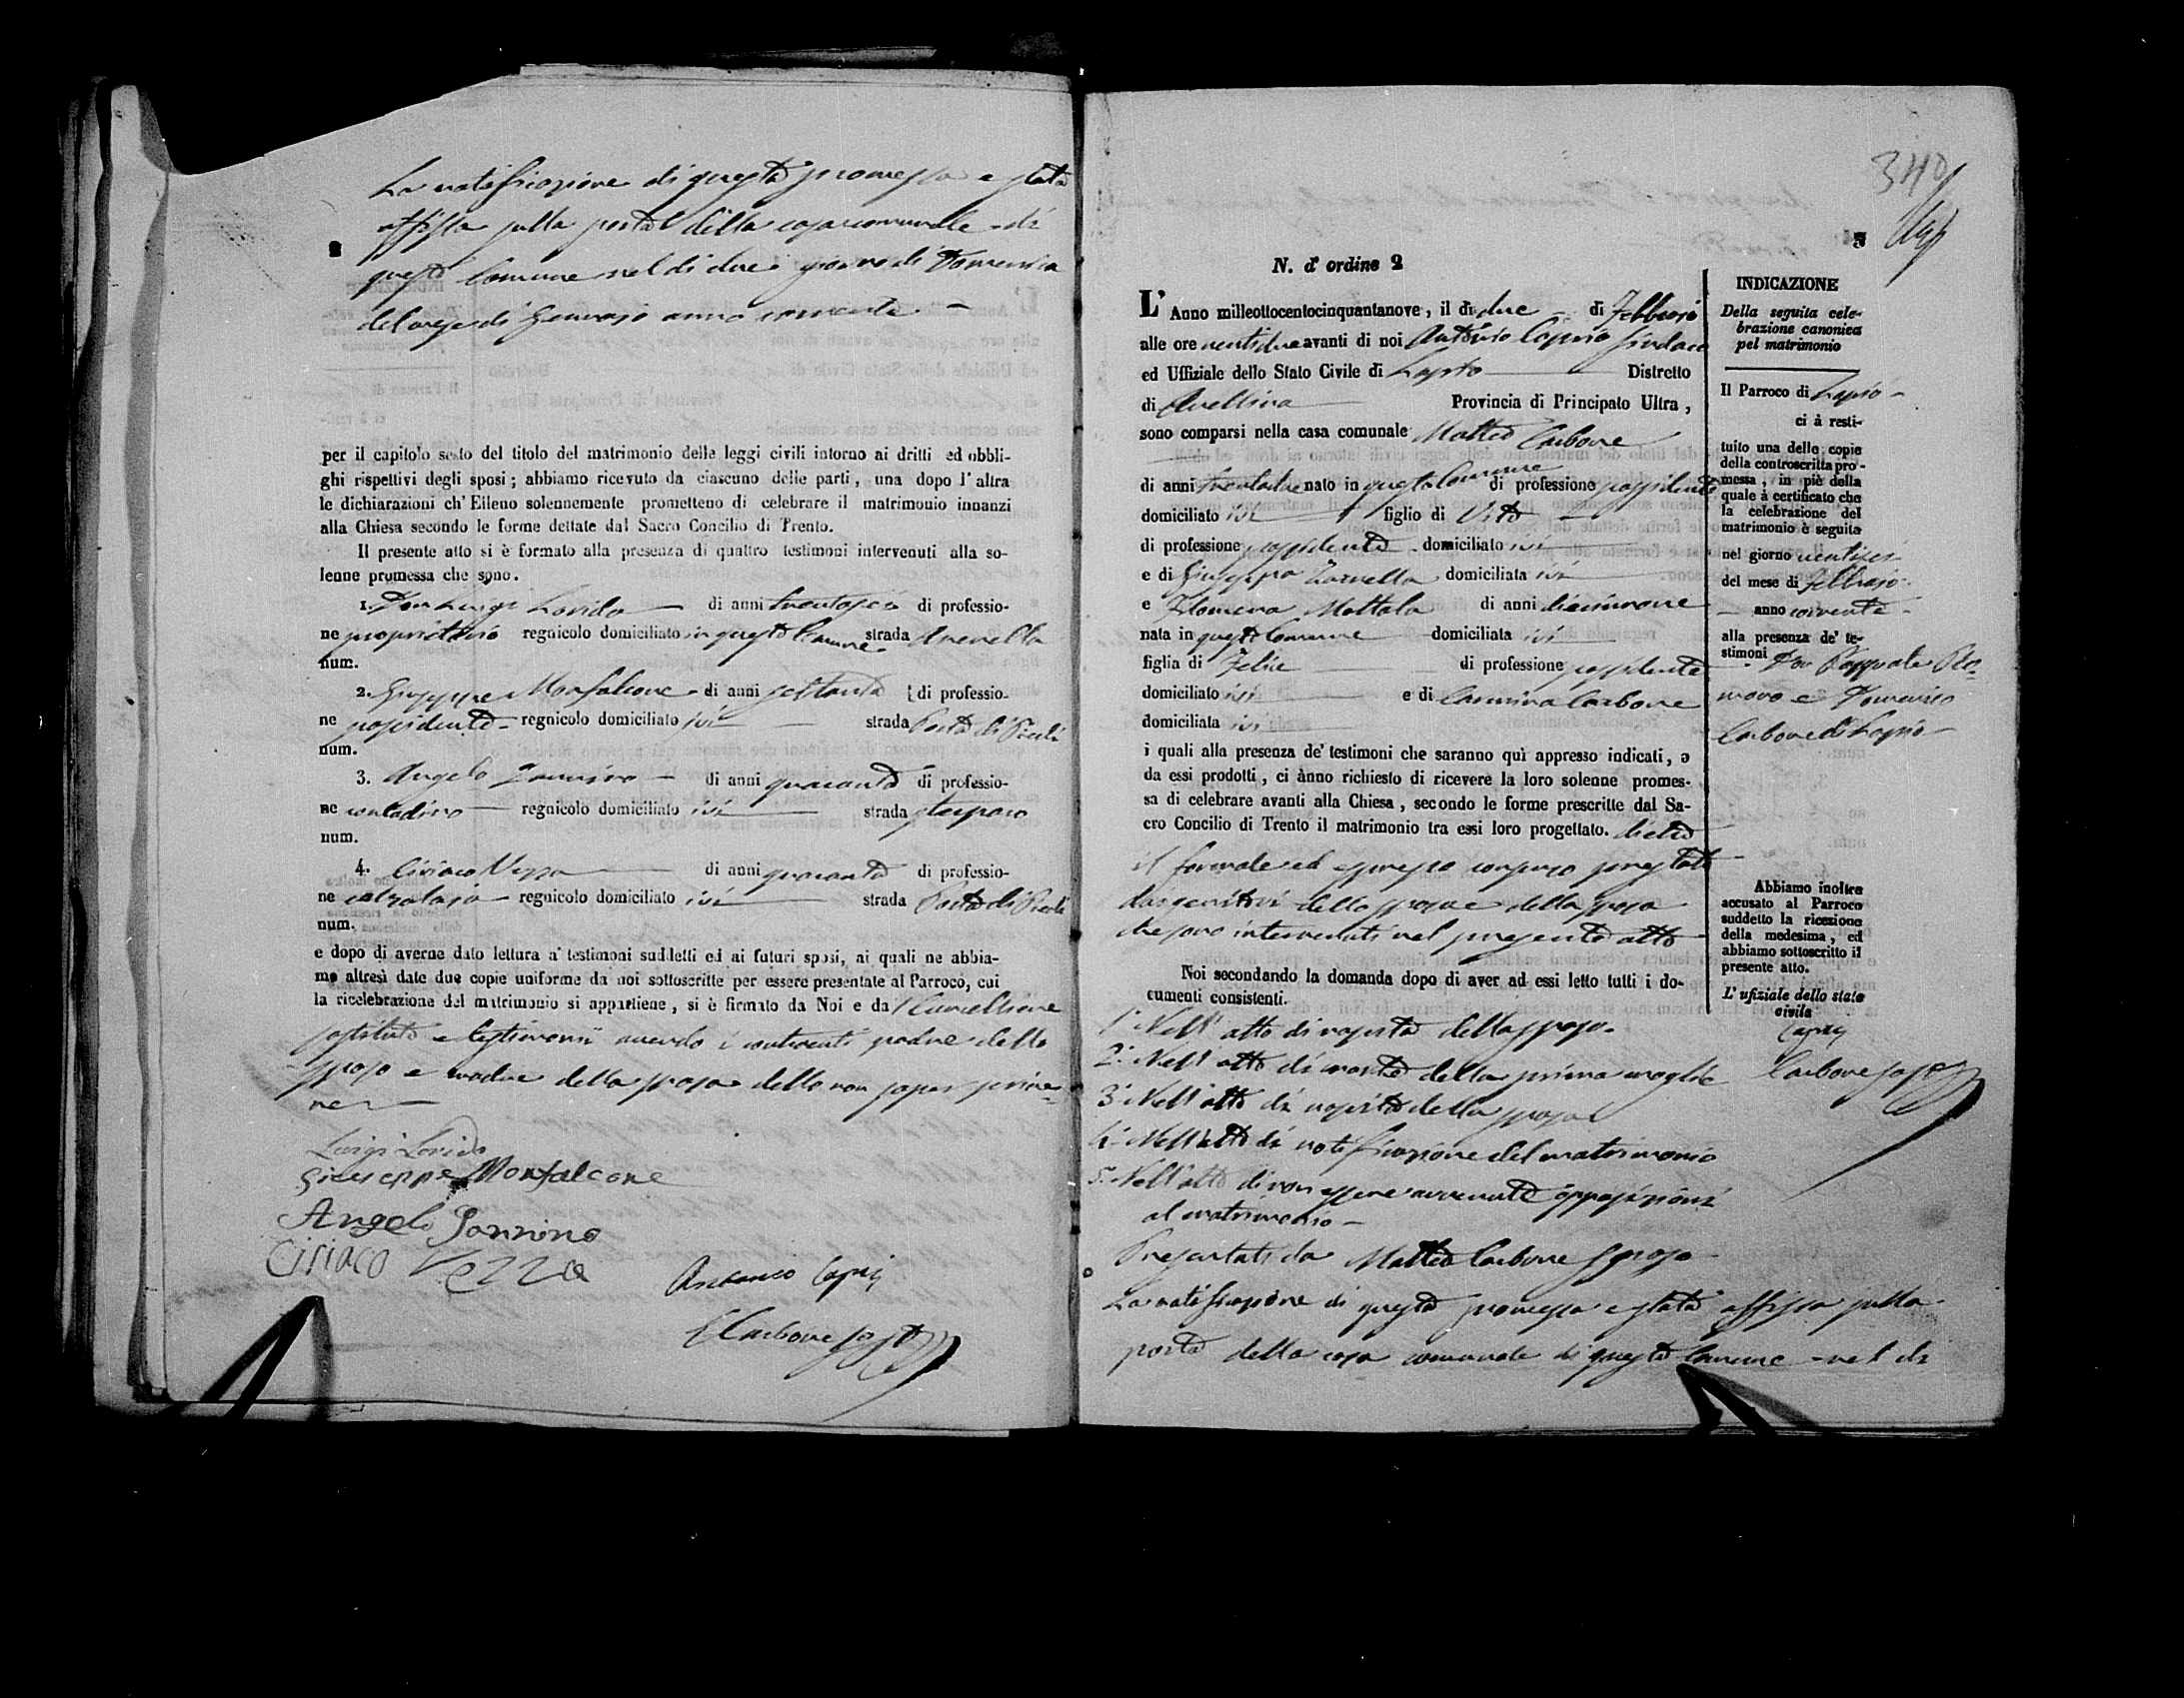 La notificazione di questa promessa e stata
affissa sulla porta della casa comunale di
questo Comune nel di due giorno di Domenica
del mese di Gennajo anno corrente
2
per il capitolo sesto del titolo del matrimonio delle leggi civili intorno ai dritti ed obbli-
ghi rispettivi degli sposi; abbiamo ricevuto da ciascuno delle parti, una dopo l'altra
le dichiarazioni ch' Elleno solennemente promettono di celebrare il matrimonio innanzi
alla Chiesa secondo le forme dettate dal Sacro Concilio di Trento.
Il presente atto si è formato alla presenza di quattro testimoni intervenuti alla so-
lenne promessa che sono.
1. Don Luigi Lovido di anni trentasei di professio-
ne proprietario regnicolo domiciliato in questo Comune strada
num.
2. Giuseppe Monfalcone di anni settanta di professio-
ne possidente regnicolo domiciliato ivi strada Porta di
num.
3. Angelo Iannino di anni quaranta di professio-
ne contadino regnicolo domiciliato ivi strada
num.
4. Ciriaco Vezza di anni quaranta di professio-
ne calzolajo regnicolo domiciliato ivi strada Porta di
num.
e dopo di averne dato lettura a' testimoni suddetti ed ai futuri sposi, ai quali ne abbia-
mo altresì date due copie uniforme da noi sottoscritte per essere presentate al Parroco, cui
la ricelebrazione del matrimonio si appartiene, si è firmato da Noi e dal Cancelliere
sostituto e testimonii avendo i contraenti padre dello
sposo e madre della sposa detto non saper scrive
re
Luigi Lovido
Giuseppe Monfalcone
Angelo Iannino
Ciriaco Vezza
Antonio Caprio
Carbone sost
340
3
N. d' ordine 2
L' Anno milleottocentocinquantanove, il dì due di Febbrajo
alle ore ventidue avanti di noi Antonio Caprio Sindaco
ed Uffiziale dello Stato Civile di Lapio Distretto
di Avellino Provincia di Principato Ultra,
sono comparsi nella casa comunale Matteo Carbone
di anni trentadue nato in questo Comune di professione possidente
domiciliato ivi figlio di Vito
di professione possidente domiciliato ivi
e di Giuseppa domiciliata ivi
e Filomena Mottola di anni diecinnove
nata in questo Comune domiciliata ivi
figlia di Felice di professione possidente
domiciliato ivi e di Carmina Carbone
domiciliata ivi
i quali alla presenza de' testimoni che saranno quì appresso indicati, e
da essi prodotti, ci ànno richiesto di ricevere la loro solenne promes-
sa di celebrare avanti alla Chiesa, secondo le forme prescritte dal Sa-
cro Concilio di Trento il matrimonio tra essi loro progettato. dietro
il formale ed espresso consenso prestato
dai genitori dello sposo e della sposa
che sono intervenuti nel presente atto
Noi secondando la domanda dopo di aver ad essi letto tutti i do-
cumenti consistenti.
1.º Nell' atto di nascita dello sposo.
2.º Nell' atto di morte della prima moglie
3.º Nell' atto di nascita della sposa
4.º Nell' atto di notificazione del matrimonio
5.º Nell' atto di non essere avvenute opposizioni
al matrimonio
Presentati da Matteo Carbone sposo
La notificazione di questa promessa e stata affissa sulla
porta della casa comunale di questo Comune nel di
INDICAZIONE
Della seguita cele-
brazione canonica
pel matrimonio
Il Parroco di Lapio
ci à resti-
tuito una delle copie
della controscritta pro-
messa, in piè della
quale à certificato che
la celebrazione del
matrimonio è seguita
nel giorno ventisei
del mese di Febbrajo
anno corrente
alla presenza de' te-
stimoni Don Pasquale Ro-
mano e Domenico
Carbone di Lapio
Abbiamo inoltre
accusato al Parroco
suddetto la ricezione
della medesima, ed
abbiamo sottoscritto il
presente atto.
L' ufiziale dello stato
civile
Caprio
Carbone sost